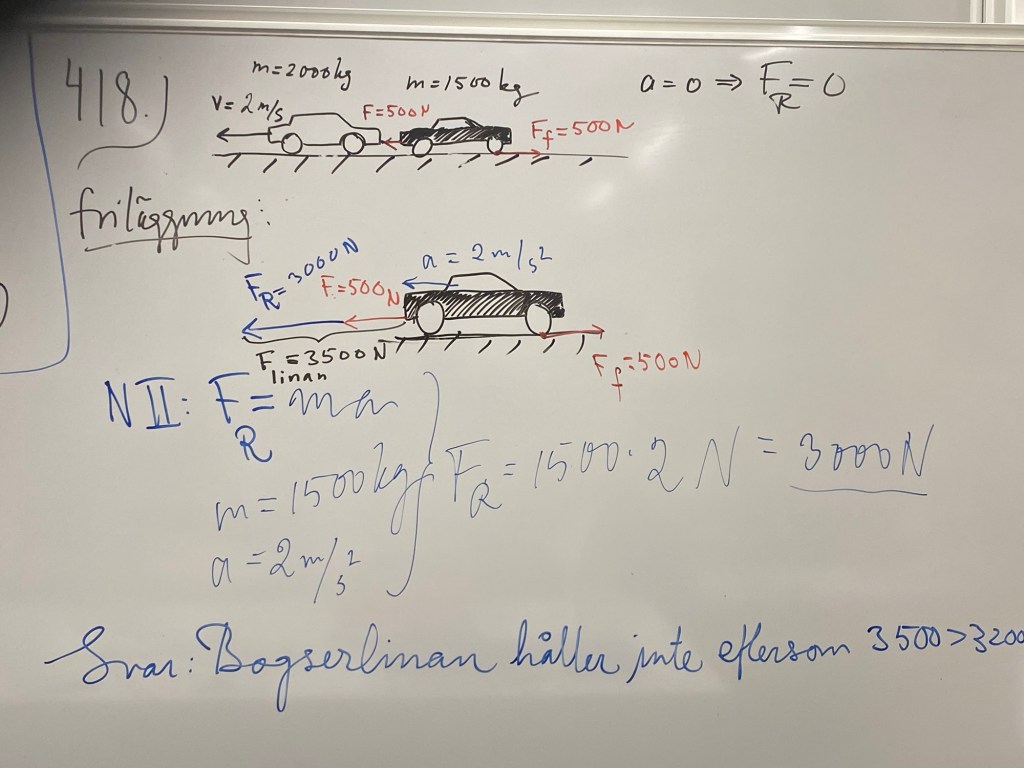 418.)
m=2000kg
m=1500kg
a=0 ⇒ F_R=0
v=2m/s
F=500N
F_f=500N
friläggning:
F_R=3000N
F=500N
a=2m/s²
F_linan=3500N
F_f=500N
NII: F_R=ma
m=1500kg
F_R=1500·2N=3000N
a=2m/s²
Svar: Bogserlinan håller inte eftersom 3500>3200